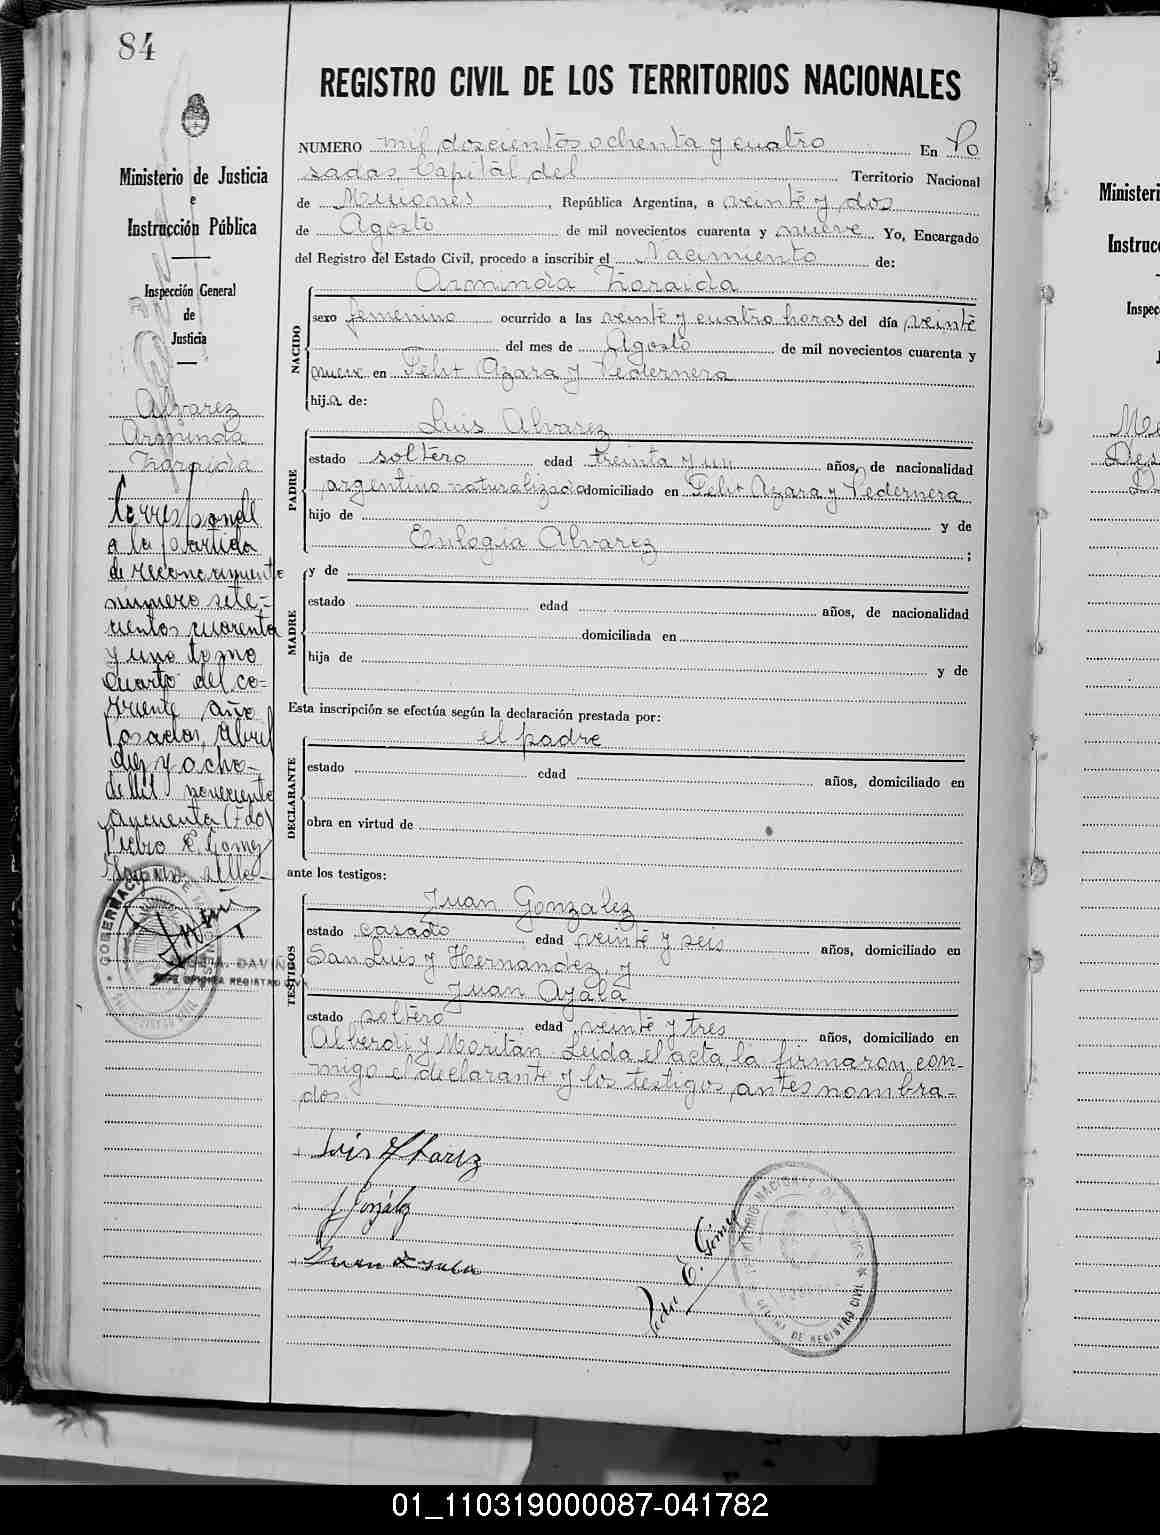 84
Ministerio de Justicia
e
Instrucción Pública
Inspección General
de
Justicia
Alvarez
Arminda
Zoraida
Corresponde
a la partida
de reconocimiento
número sete-
cientos cuarenta
y uno tomo
cuarto del co-
rriente año
Posadas, Abril
diez y ocho
de mil novecientos
cincuenta (Fdo)
Pedro E. Gomez
REGISTRO CIVIL DE LOS TERRITORIOS NACIONALES
NUMERO mil doscientos ochenta y cuatro En Po
sadas Capital del Territorio Nacional
de Misiones, República Argentina, a veinte y dos
de Agosto de mil novecientos cuarenta y nueve Yo, Encargado
del Registro del Estado Civil, procedo a inscribir el Nacimiento de:
NACIDO
Arminda Zoraida
sexo femenino ocurrido a las veinte y cuatro horas del día veinte
del mes de Agosto de mil novecientos cuarenta y
nueve en Felix Azara y Pedernera
hija de:
PADRE
Luis Alvarez
estado soltero edad treinta y un años, de nacionalidad
argentino naturalizado domiciliado en Felix Azara y Pedernera
hijo de y de
Eulogia Alvarez ;
MADRE
y de
estado edad años, de nacionalidad
domiciliada en
hija de y de
Esta inscripción se efectúa según la declaración prestada por:
DECLARANTE
el padre
estado edad años, domiciliado en
obra en virtud de
ante los testigos:
TESTIGOS
Juan Gonzalez
estado casado edad veinte y seis años, domiciliado en
San Luis y Hernandez, y
Juan Ayala
estado soltero edad veinte y tres años, domiciliado en
Alberdi y Moritan. Leida el acta la firmaron con-
migo el declarante y los testigos antes nombra-
dos
Luis Alvarez
J. González
Juan Ayala
Pedro E. Gómez
01_110319000087-041782